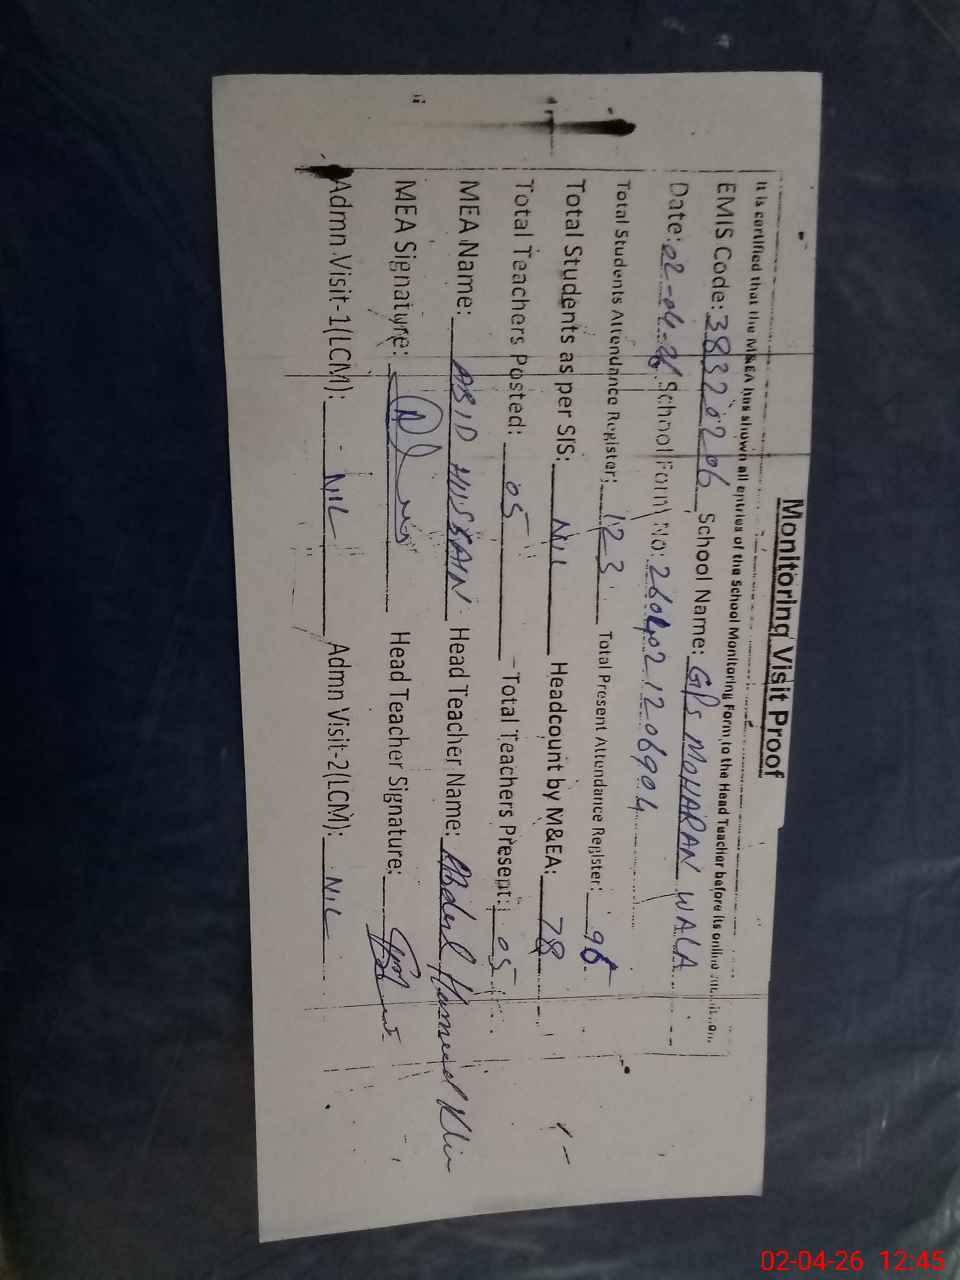 Monitoring Visit Proof
It is certified that the M&EA has shown all entries of the School Monitoring Form to the Head Teacher before its online
EMIS Code: 38320206 School Name: GPS MOHARAN WALA
Date: 02-04-26 School Form No: 2604021206904
Total Students Attendance Register: 123 Total Present Attendance Register: 96
Total Students as per SIS: NIL Headcount by M&EA: 78
Total Teachers Posted: 05 Total Teachers Present: 05
MEA Name: ABID HUSSAIN Head Teacher Name: Abdul Hameed Khan
MEA Signature: Head Teacher Signature:
Admn Visit-1(LCM): NIL Admn Visit-2(LCM): NIL
02-04-26 12:45